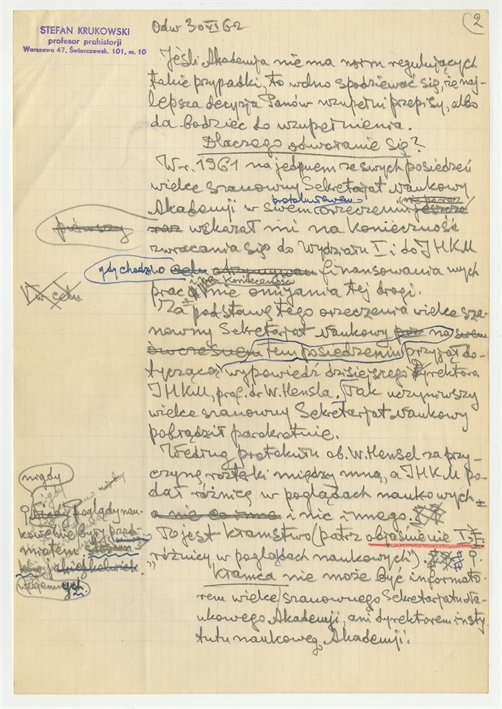 STEFAN KRUKOWSKI
profesor prehistorji
Warszawa 47, Świerczewsk. 101, m. 10
Odw 30 VI 62
2
Jeśli Akademja nie ma norm regulujących
takie przypadki, to wolno spodziewać się, że naj-
lepsza decyzja Panów uzupełni przepisy, albo
da bodziec do uzupełnienia.
Dlaczego odwołanie się?
W r. 1961 na jednem ze swych posiedzeń
wielce szanowny Sekretarjat Naukowy
Akademji w swem protokularnem orzeczeniu
pierwszy raz wskazał mi na konieczność
zwracania się do Wydziału I i do IHKM
gdy chodziło o finansowania mych
prac i na konieczność nie omijania tej drogi.
W celu
Za podstawę tego orzeczenia wielce sza-
nowny Sekretarjat Naukowy na swem
tem posiedzeniu przyjął do-
tyczącą wypowiedź dzisiejszego dyrektora
IHKM, prof. dr W. Hensla. Tak uczyniwszy
wielce szanowny Sekretarjat Naukowy
pobłądził parokrotnie.
Według protokułu ob. W. Hensel za przy-
czynę rozłąki między mną, a IHKM po-
dał różnicę w poglądach naukowych
a nie co inne i nic innego.
To jest kłamstwo (patrz objaśnienie I:
"różnicy w poglądach naukowych").
Kłamca nie może być informato-
rem wielce szanownego Sekretarjatu Na-
ukowego Akademji, ani dyrektorem insty-
tutu naukoweg. Akademji.
nigdy
poglądy nau-
kowe nie były przed-
miotem
wzajemnych.